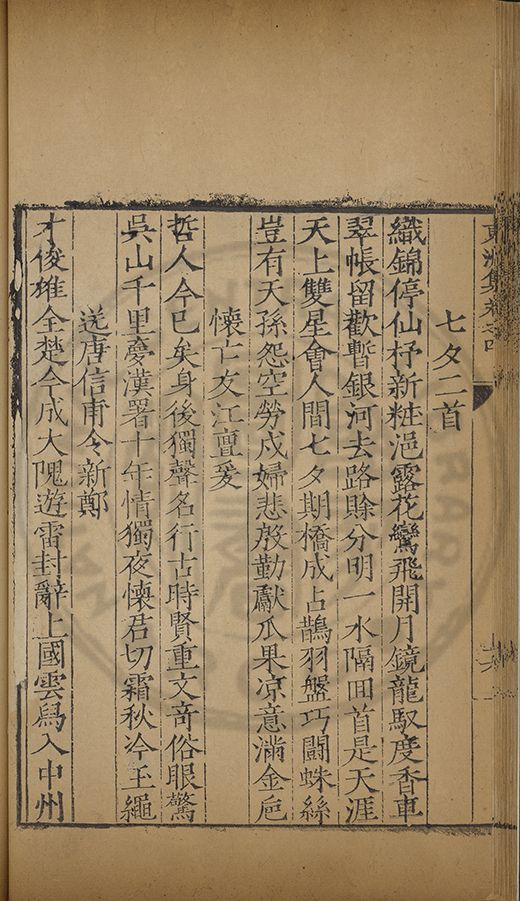 東洲集卷之四
七夕二首
織錦停仙杼新粧浥露花鸞飛開月鏡龍馭度香車
翠帳留歡暫銀河去路賒分明一水隔囬首是天涯
天上雙星會人間七夕期橋成占鵲羽盤巧鬬蛛絲
豈有天孫怨空勞戍婦悲殷勤獻瓜果凉意滿金巵
懷亡友江亶爰
哲人今已矣身後獨聲名行古時賢重文奇俗眼驚
吳山千里夢漢署十年情獨夜懷君切霜秋冷玉繩
送唐信甫令新鄭
才俊雄全楚今成大隗遊雷封辭上國雲舄入中州